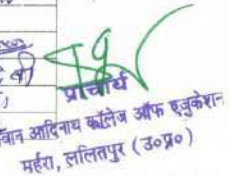 प्राचार्य
वान आदिनाथ कॉलेज ऑफ एजुकेशन
महर्रा, ललितपुर (उ०प्र०)